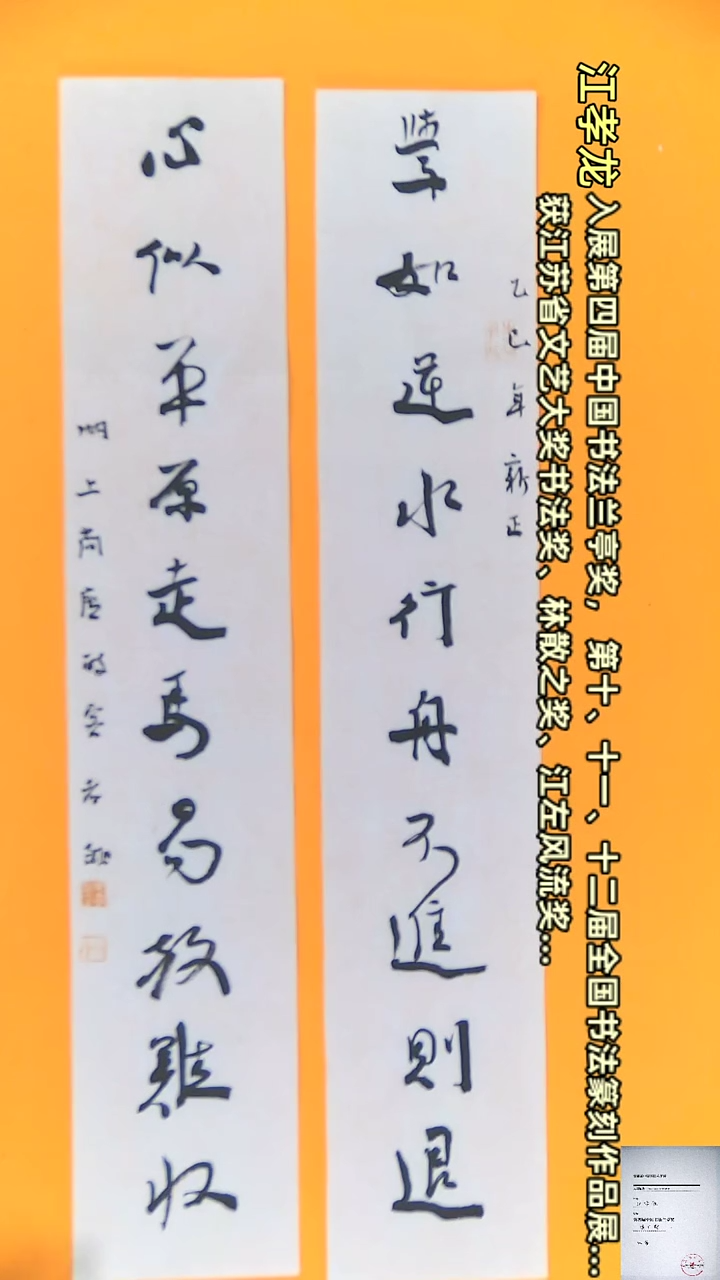 江孝龙
入展第四届中国书法兰亭奖，第十、十一、十二届全国书法篆刻作品展...
获江苏省文艺大奖书法奖、林散之奖、江左风流奖...
乙巳年新正
學如逆水行舟不進則退
心似平原走馬易放難收
湖上尚